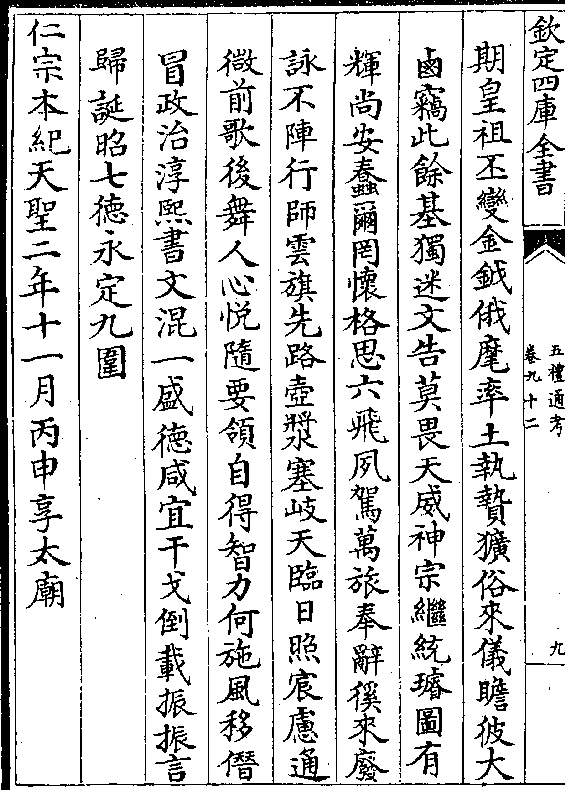 欽定四庫全書
五禮通考
卷九十二
九
期皇祖丕變金鉞俄麾率土執贄獷俗來儀瞻彼大
鹵竊此餘基獨迷文告莫畏天威神宗繼統璿圖有
輝尚安蠢爾罔懷格思六飛夙駕萬旅奉辭徯來廢
詠不陣行師雲旗先路壺漿塞岐天臨日照宸慮通
微前歌後舞人心悦隨要領自得智力何施風移僭
冒政治淳熙書文混一盛德咸宜干戈倒載振振言
歸誕昭七德永定九圍
仁宗本紀天聖二年十一月丙申享太廟